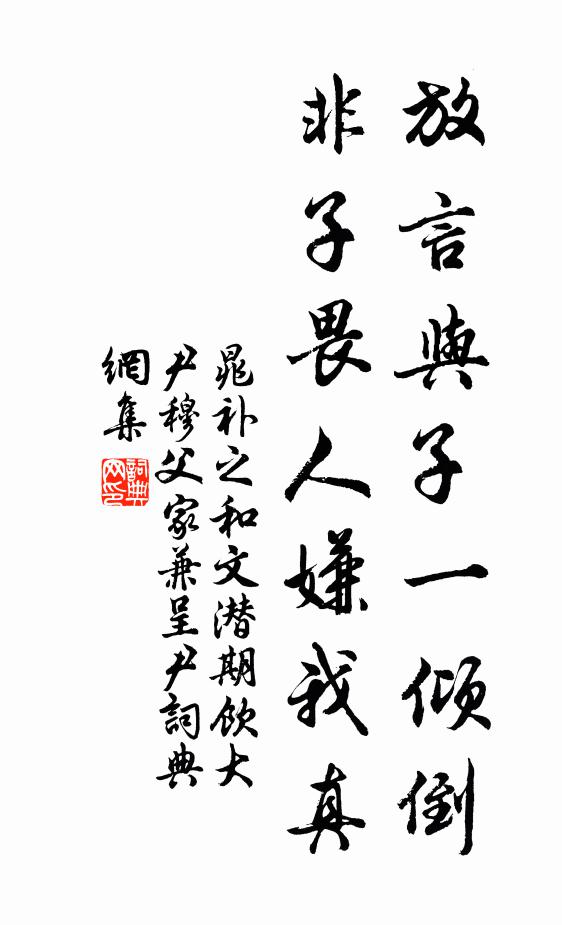 放言與子一傾倒
非子畏人嫌我真
晁补之和文潜期飲大
尹穆父家兼呈尹詞典
網集
詞典
网印